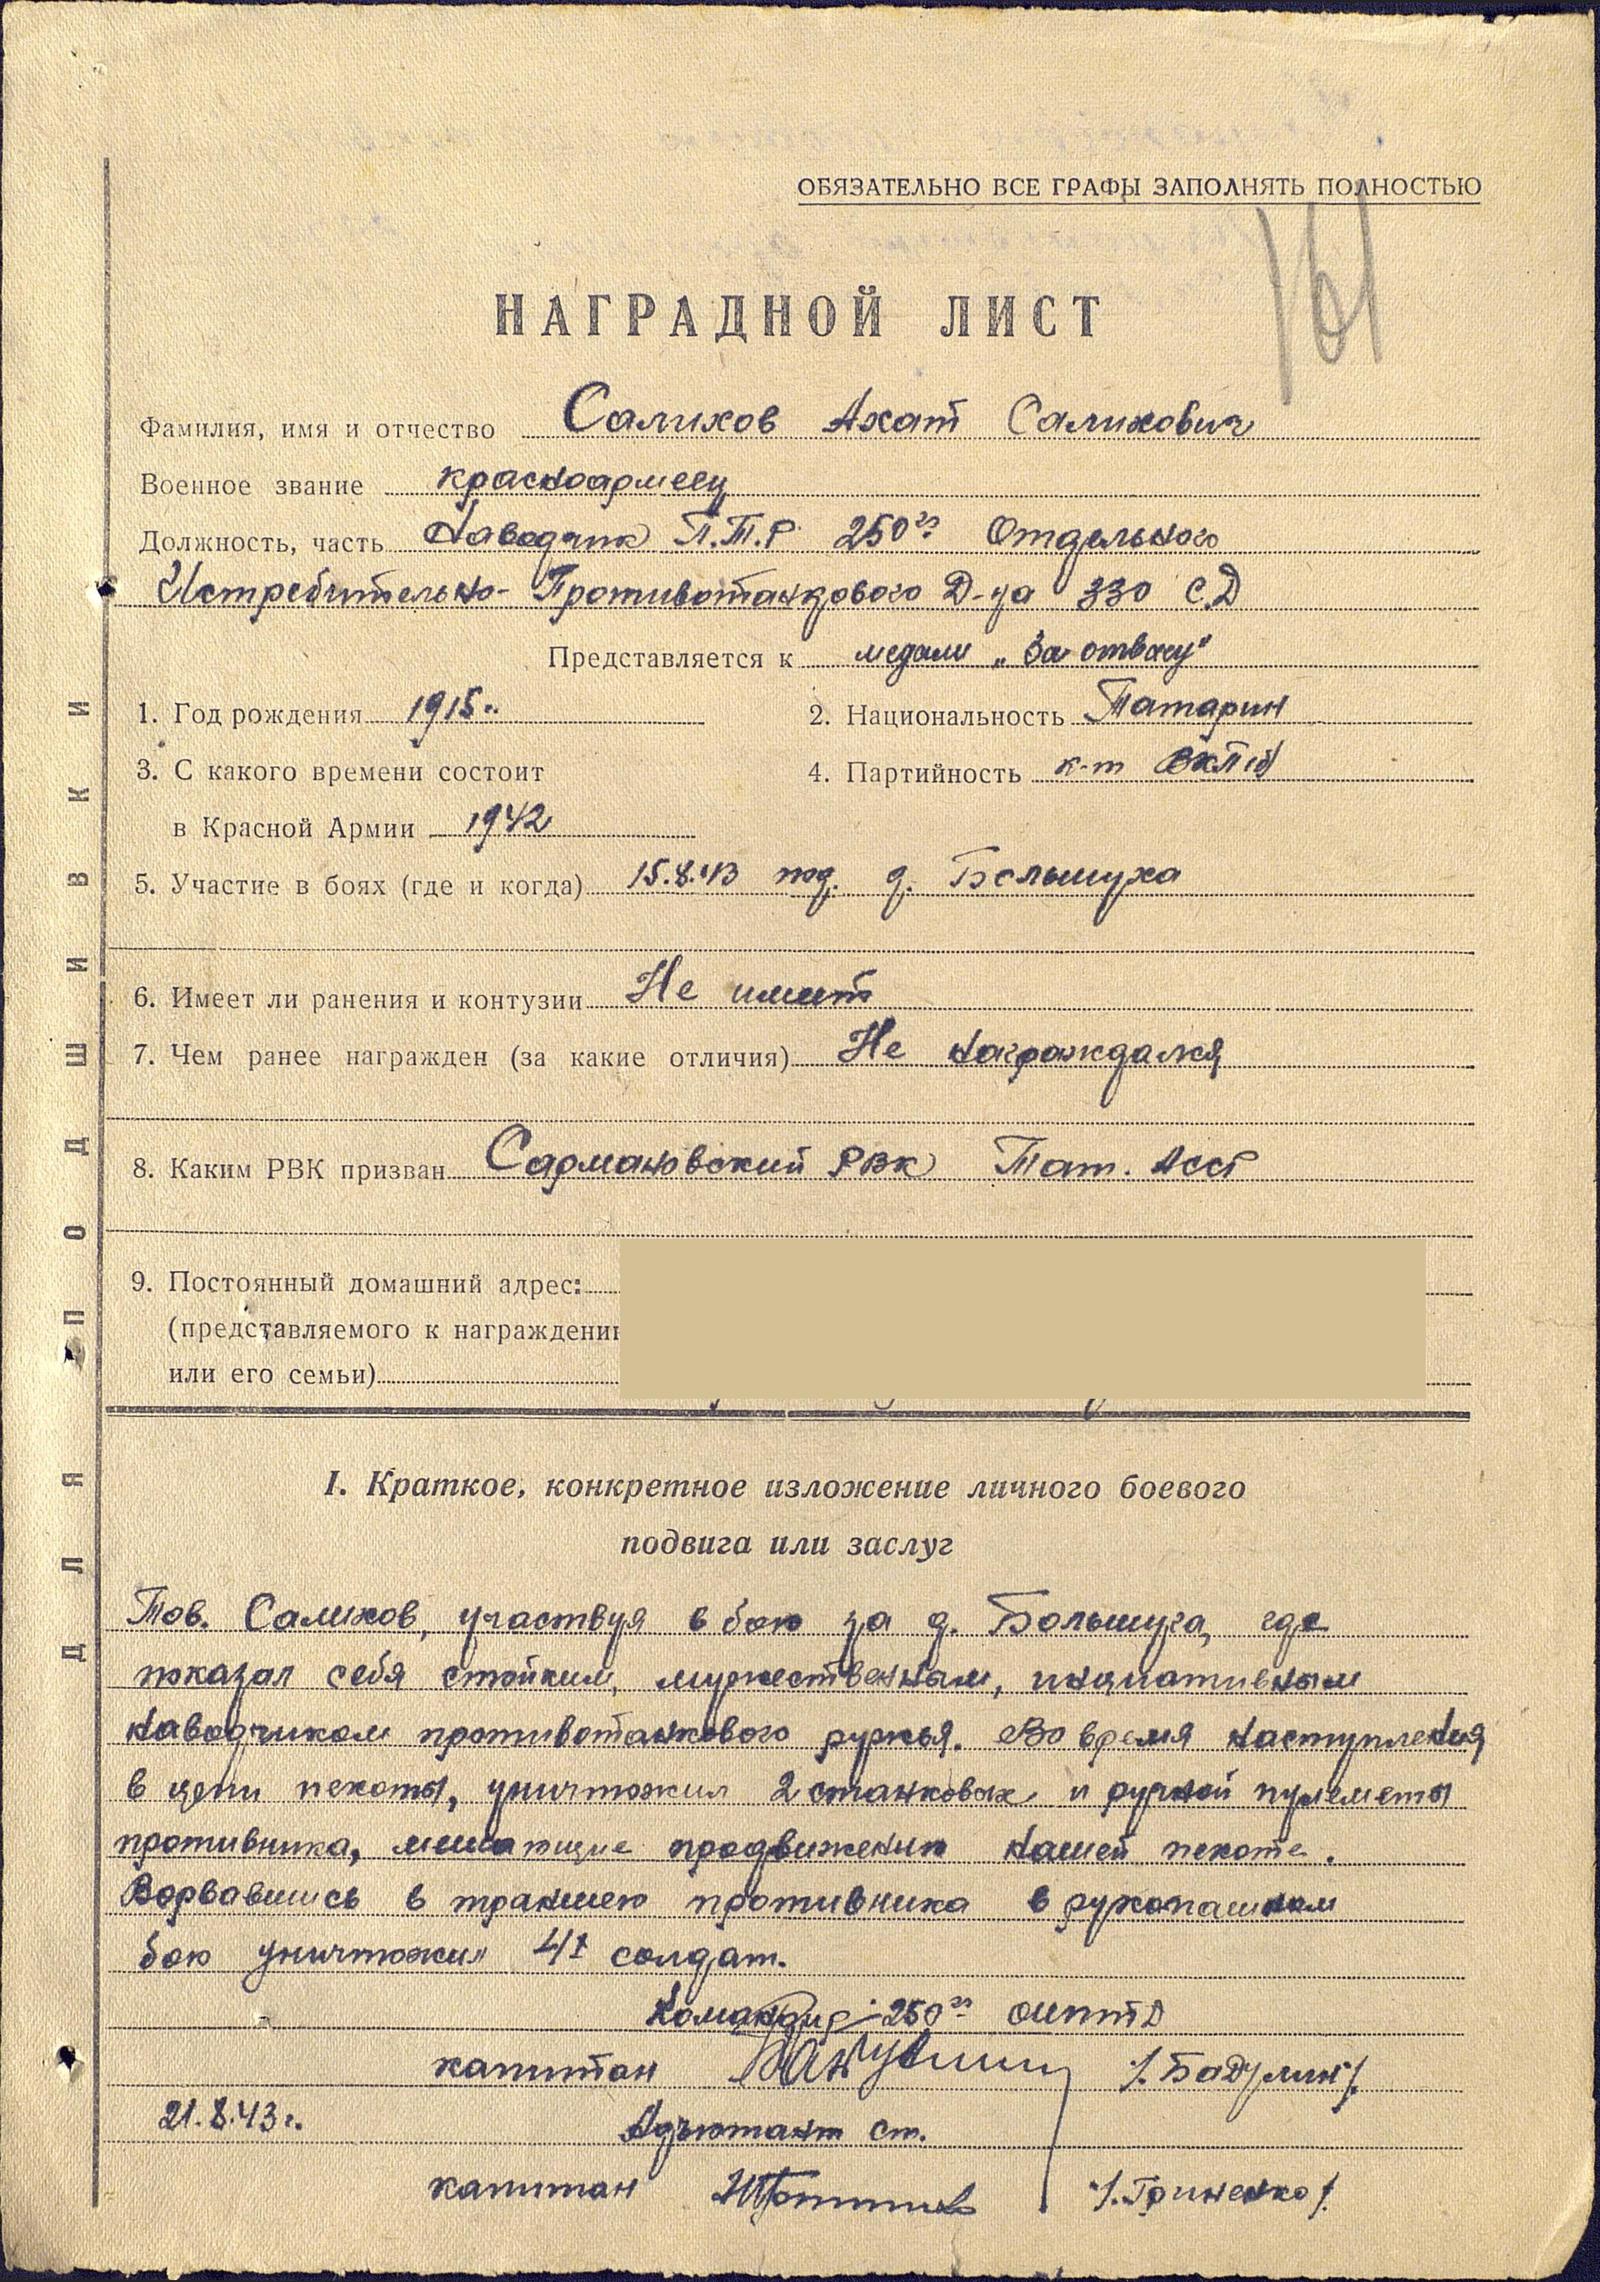 ОБЯЗАТЕЛЬНО ВСЕ ГРАФЫ ЗАПОЛНЯТЬ ПОЛНОСТЬЮ
161
НАГРАДНОЙ ЛИСТ
Фамилия, имя и отчество Салихов Ахат Салихович
Военное звание красноармеец
Должность, часть Наводчик П.Т.Р 250го Отдельного
Истребительно-Противотанкового Д-на 330 С.Д
Представляется к медали „За отвагу"
1. Год рождения 1915г.
2. Национальность Татарин
3. С какого времени состоит
в Красной Армии 1942
4. Партийность к-т ВКП(б)
5. Участие в боях (где и когда) 15.8.43 под. д. Большуха
6. Имеет ли ранения и контузии Не имеет
7. Чем ранее награжден (за какие отличия) Не награждался
8. Каким РВК призван Сармановский РВК Тат. АССР
9. Постоянный домашний адрес:
(представляемого к награждени
или его семьи)
ДЛЯ ПОДШИВКИ
I. Краткое, конкретное изложение личного боевого
подвига или заслуг
Тов. Салихов, участвуя в бою за д. Большуха, где
показал себя стойким, мужественным, инциативным
наводчиком противотанкового ружья. Во время наступления
в цепи пехоты, уничтожил 2 станковых и ручной пулеметы
противника, мешающие продвижению нашей пехоте.
Ворвавшись в траншею противника в рукопашном
бою уничтожил солдат.
Командир 250го ОИПТД
капитан /.Бадулин/.
21.8.43г. Адъютант ст.
капитан /.Гриненко/.